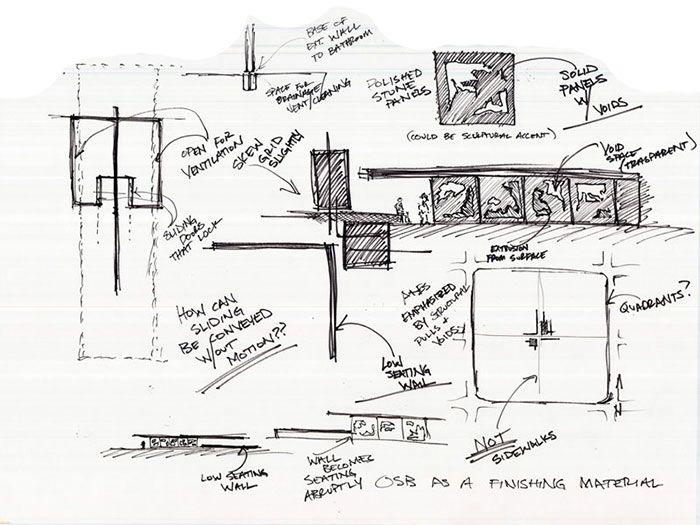 BASE OF
EXT. WALL
TO BATHROOM
SPACE FOR
DRAINAGE/
VENT/CLEANING
POLISHED
STONE
PANELS
SOLID
PANELS
W/
VOIDS
(COULD BE SCULPTURAL ACCENT)
OPEN FOR
VENTILATION
SKEW
GRID
SLIGHTLY
VOID
SPACE
(TRASPARENT)
SLIDING
DOORS
THAT LOCK
EXTRUSION
FROM SURFACE
HOW CAN
SLIDING
BE CONVEYED
W/OUT
MOTION??
AXES
EMPHASIZED
BY STRUCTURAL
PULLS +
VOIDS
QUADRANTS?
LOW
SEATING
WALL
N
NOT
SIDEWALKS
LOW SEATING
WALL
WALL
BECOMES
SEATING
ABRUPTLY
OSB AS A FINISHING MATERIAL